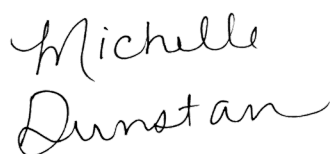 Michelle
Dunstan